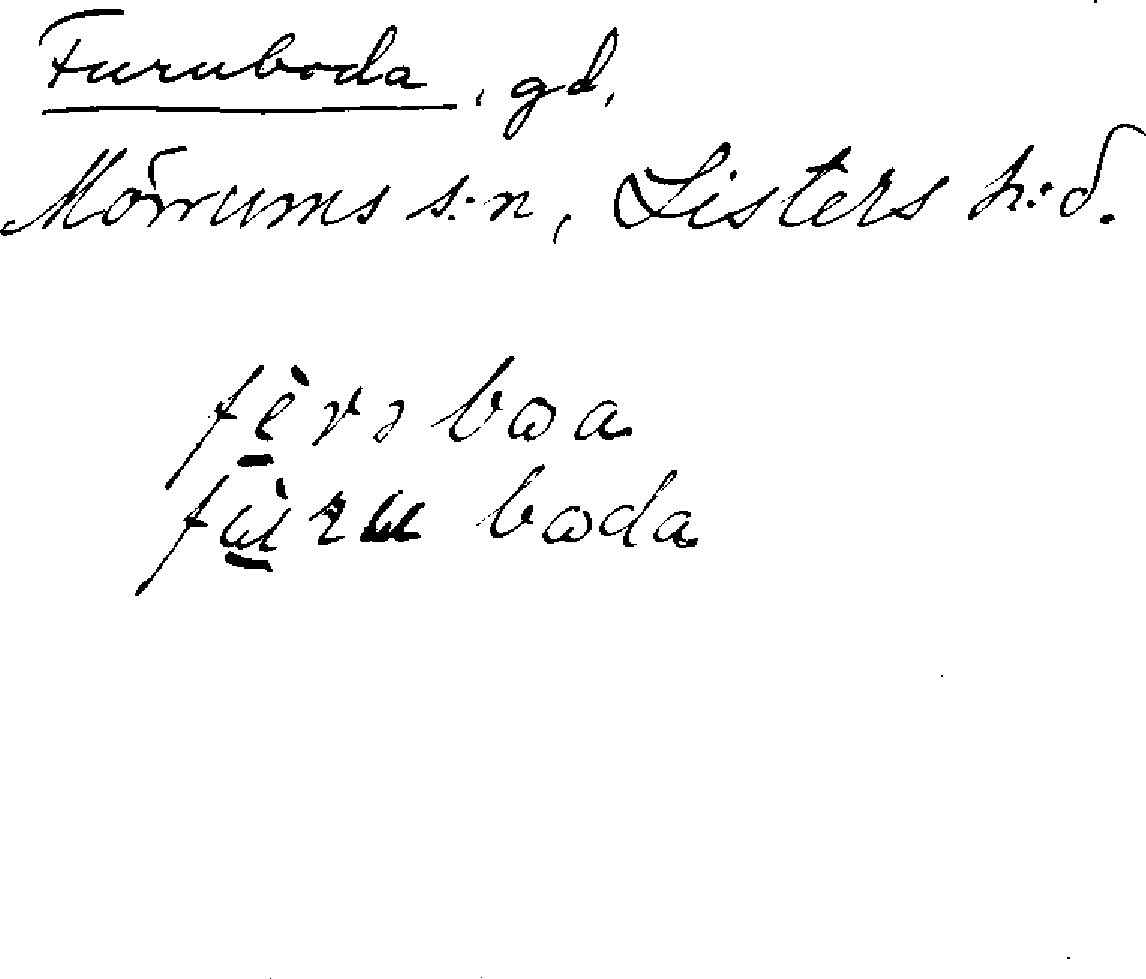 Furuboda, gd,
Mörrums s:n, Listers h:d.
fèrə boa
fùru boda